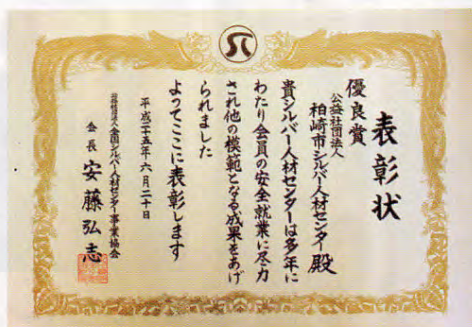 表彰状
優良賞
公益社団法人
柏崎市シルバー人材センター殿
貴シルバー人材センターは多年に
わたり会員の安全就業に尽力
され他の模範となる成果をあげ
られました
よってここに表彰します
平成二十五年六月二十日
公益社団法人全国シルバー人材センター事業協会
会長 安藤弘志